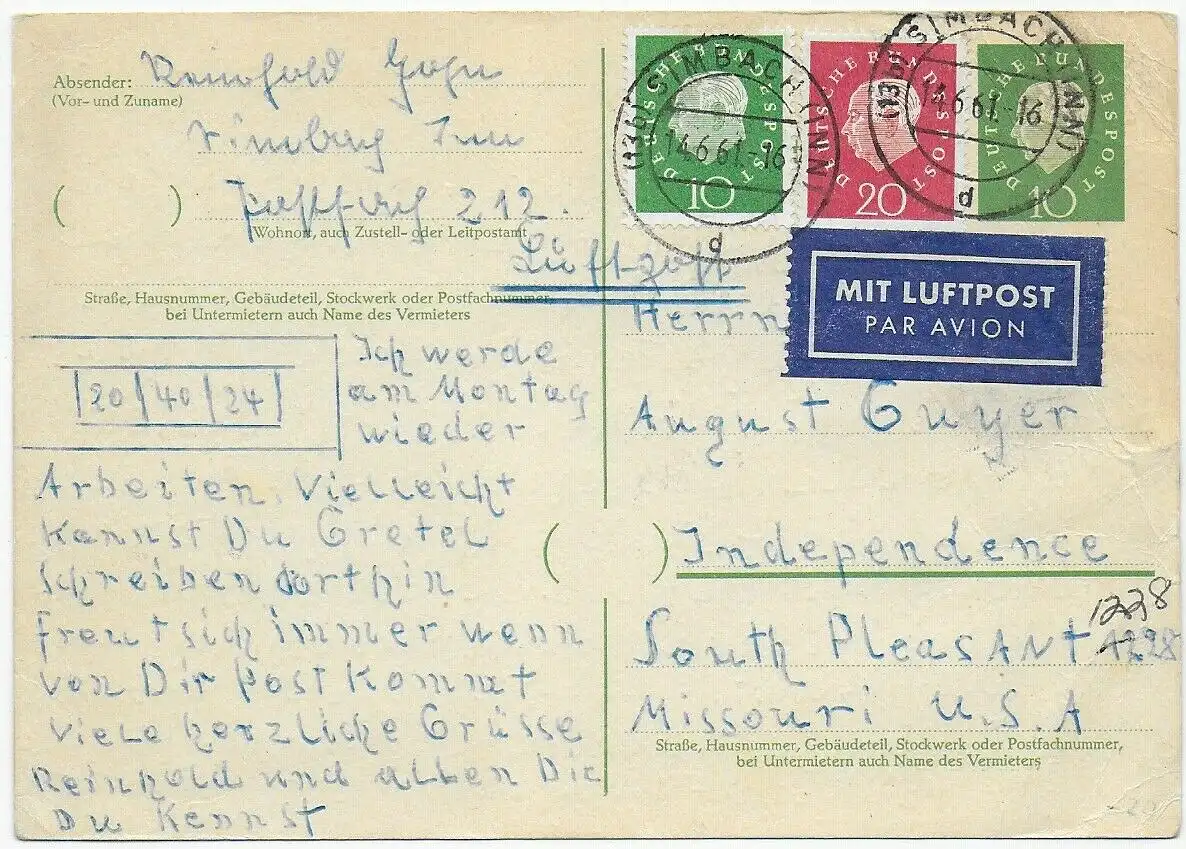 Absender:
(Vor- und Zuname)
Reinhold
Inn
Postfach 212.
Wohnort, auch Zustell- oder Leitpostamt
Straße, Hausnummer, Gebäudeteil, Stockwerk oder Postfachnummer,
bei Untermietern auch Name des Vermieters
|20|40|24|
Ich werde
am Montag
wieder
Arbeiten. Vielleicht
Kannst Du Gretel
Schreiben dorthin
freut sich immer wenn
von Dir Post Kommt
Viele herzliche Grüsse
Reinhold und allen Die
Du Kennst
DEUTSCHE BUNDESPOST
10
DEUTSCHE BUNDESPOST
20
DEUTSCHE BUNDESPOST
10
(13b) SIMBACH (INN)
14.6.61.-16
d
(13b) SIMBACH (INN)
14.6.61.-16
d
Luftpost
MIT LUFTPOST
PAR AVION
Herrn
August Guyer
Independence
1228
South PleasAnt 1298
Missouri U.S.A
Straße, Hausnummer, Gebäudeteil, Stockwerk oder Postfachnummer,
bei Untermietern auch Name des Vermieters